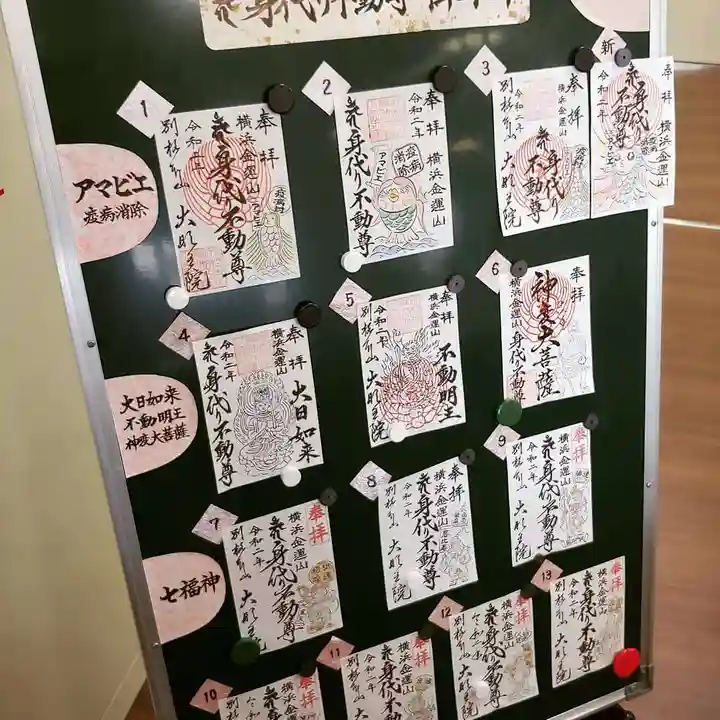 身代り不動尊
1
奉拝
横浜金運山
身代り不動尊
令和二年
別格本山 大明王院
アマビエ
2
奉拝
横浜金運山
令和二年
身代り不動尊
アマビエ
疫病
消除
3
奉拝
令和二年
身代り
不動尊
別格本山 大明王院
新
奉拝
横浜金運山
身代り
不動尊
令和二年
アマビエ
疫病消除
4
奉拝
横浜金運山
大日如来
令和二年
身代り不動尊
5
奉拝
横浜金運山
不動明王
令和二年
別格本山 大明王院
6
奉拝
神変大菩薩
横浜金運山 身代り不動尊
大日如来
不動明王
神変大菩薩
7
奉拝
横浜金運山
身代り不動尊
令和二年
別格本山 大明王院
8
奉拝
横浜金運山
身代り不動尊
令和二年
別格本山 大明王院
9
奉拝
横浜金運山
身代り不動尊
令和二年
別格本山 大明王院
七福神
10
奉拝
横浜金運山
令和二年
11
奉拝
横浜金運山
身代り不動尊
令和二年
12
奉拝
横浜金運山
身代り不動尊
令和二年
別格本山 大明王院
13
奉拝
横浜金運山
身代り不動尊
令和二年
別格本山 大明王院